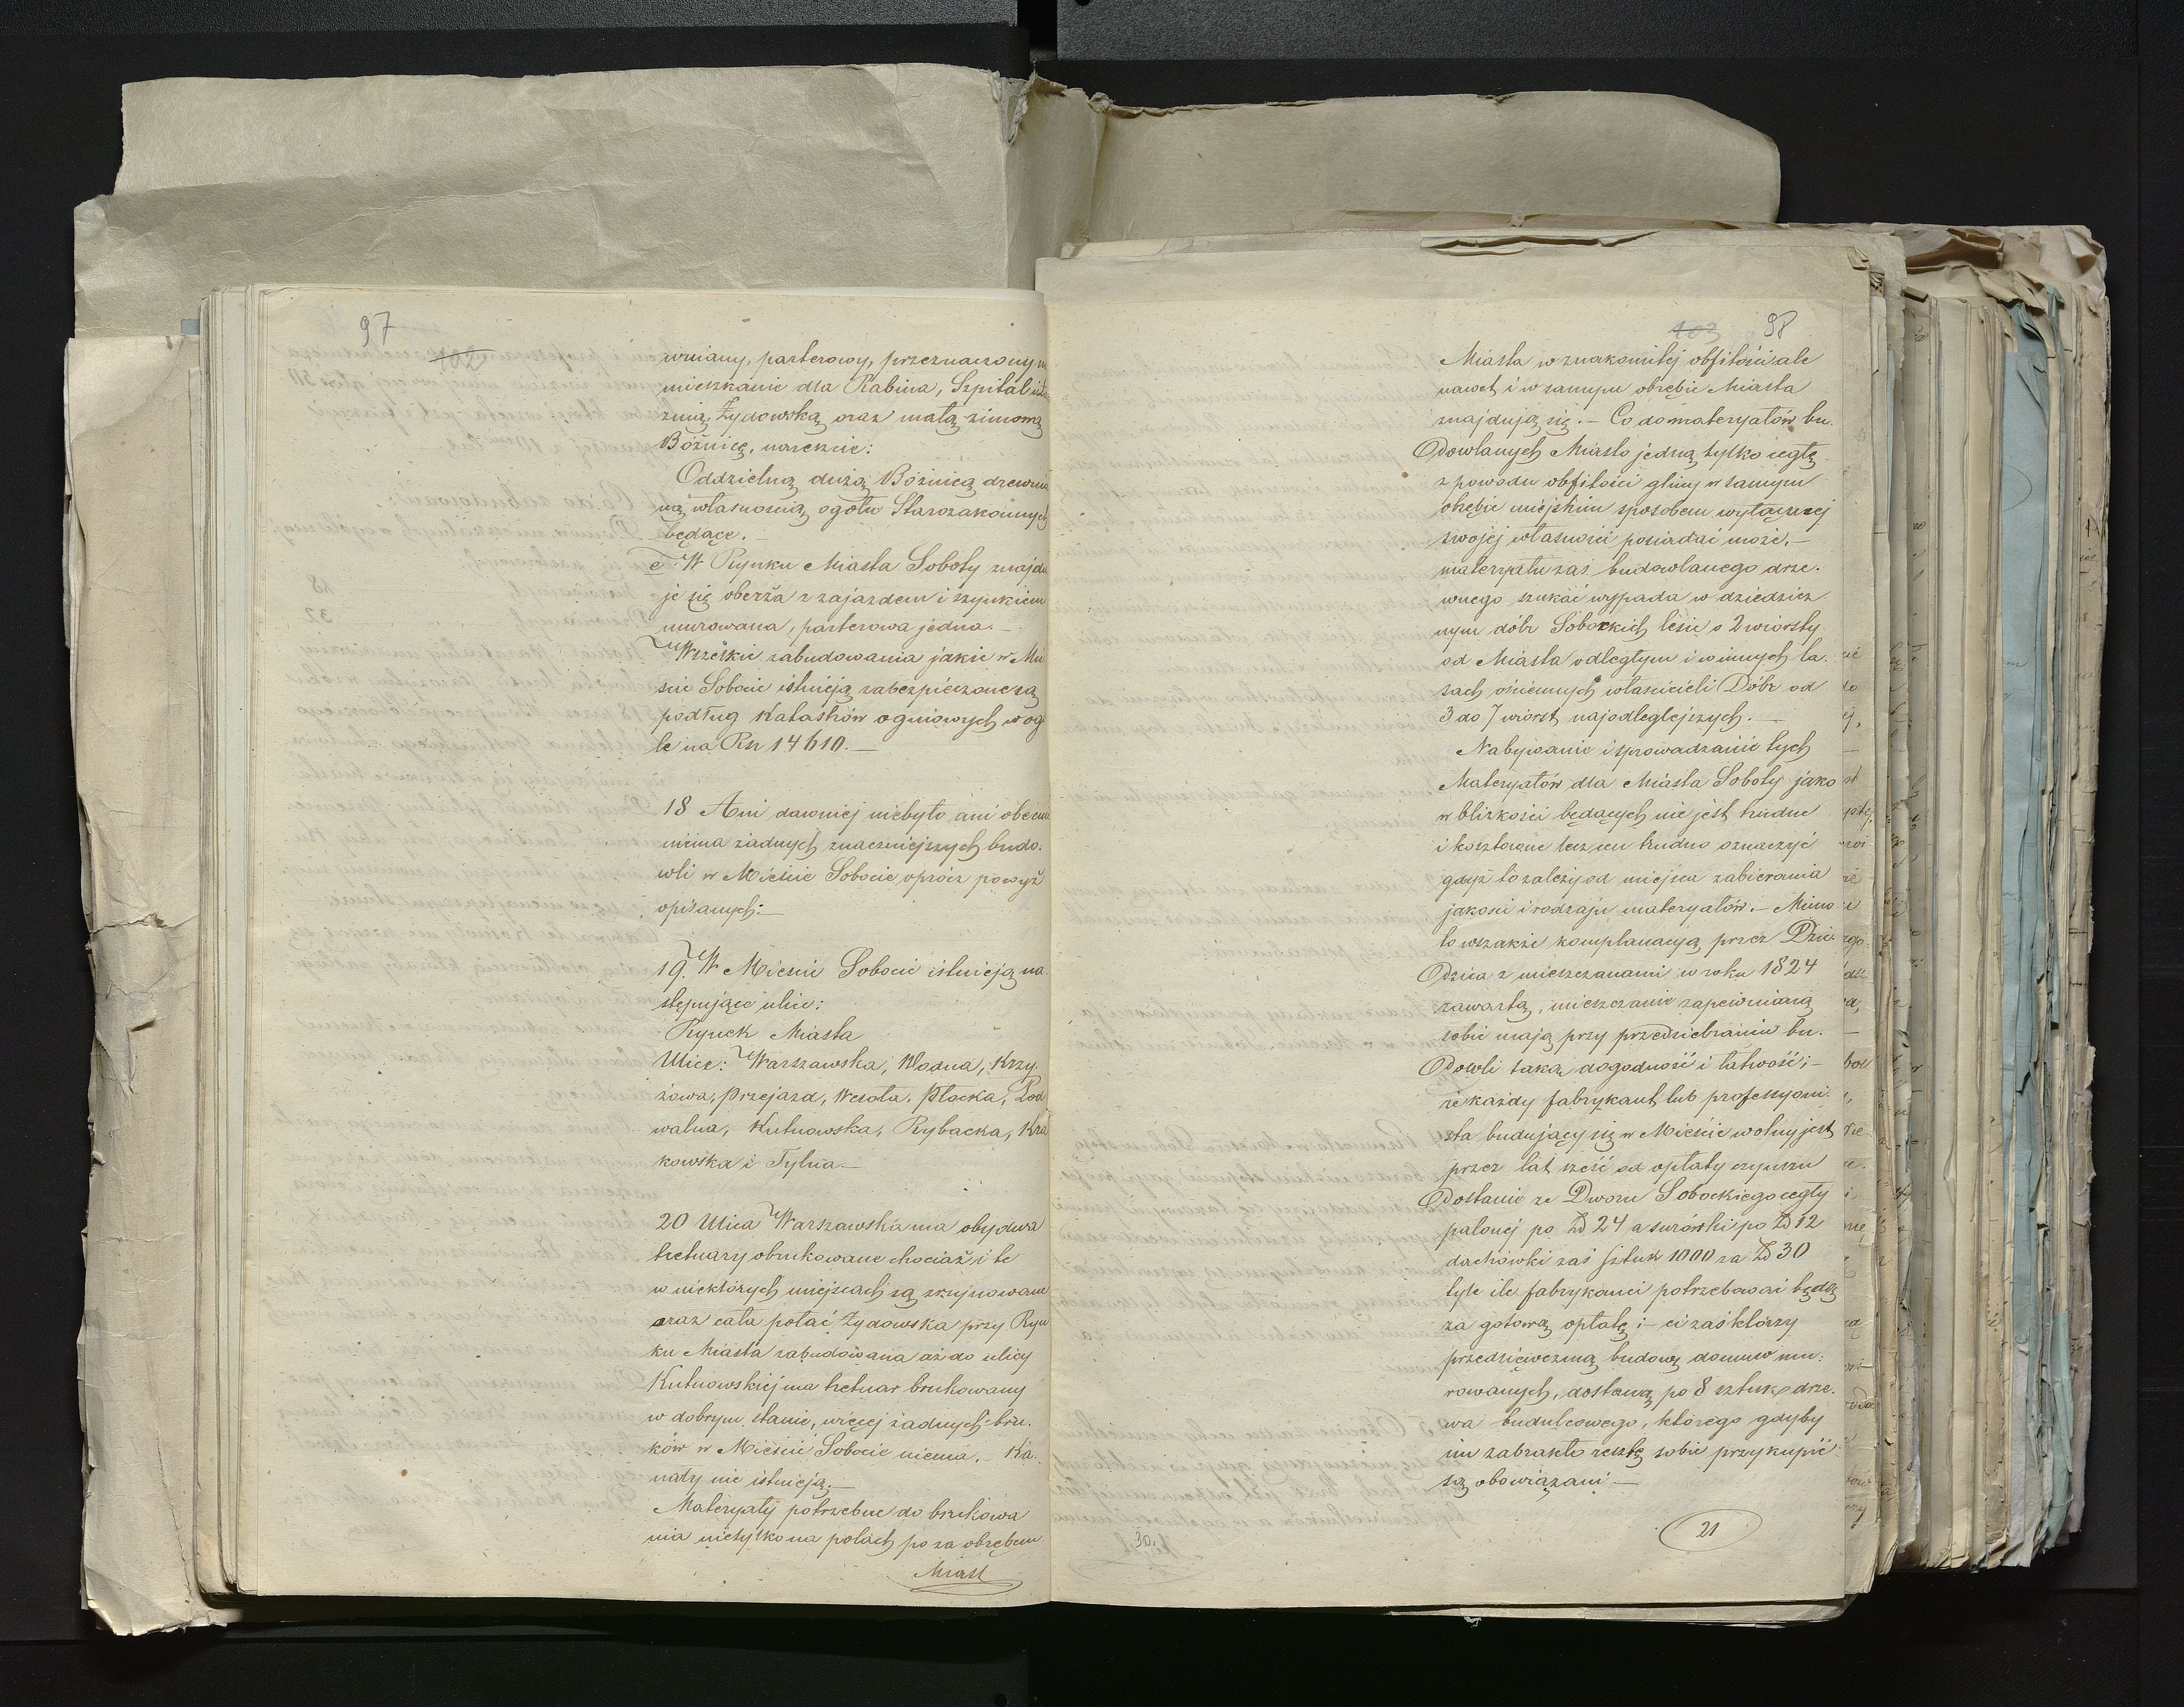 97
102
wniany, parterowy, przeznaczony na
mieszkanie dla Rabina, Szpital i
znią Żydowską oraz małą zimową
Bóżnicę, nareszcie:
Oddzielną dużą Bóżnicą drewnia
ną własnością ogółu Starozakonnych
będące.
e W Rynku Miasta Soboty znajdu
je się oberża z zajazdem i szynkiem
murowana, parterowa jedna.—
Wszelkie zabudowania jakie w Mie
ście Sobocie istnieją zabezpieczone są
podług Katastrów ogniowych w ogó
le na Rsr 14610.—
18 Ani dawniej niebyło ani obecnie
niema żadnych znaczniejszych budo-
wli w Mieście Sobocie, oprócz powyż
opisanych:—
19. W Mieście Sobocie istnieją na-
stępujące ulice:
Rynek Miasta
Ulice: Warszawska, Wodna, Krzy-
żowa, Przejazd, Wesoła, Płocka, Pod
walna, Kutnowska, Rybacka, Kra
kowska i Tylna.—
20 Ulica Warszawska ma obydwa
tretuary obrukowane chociaż i te
w niektórych miejscach są zrujnowane
oraz cała połać Żydowska przy Ryn
ku Miasta zabudowana aż do ulicy
Kutnowskiej ma tretuar brukowany
w dobrym stanie, więcej żadnych bru-
ków w Mieście Sobocie niema.— Ka-
nały nie istnieją.—
Materyały potrzebne do brukowa
nia nietylko na polach po za obrębem
Miast
103
98
Miasta w znakomitej obfitości ale
nawet i w samym obrębie Miasta
znajdują się.— Co do materyałów bu-
dowlanych Miasto jedną tylko cegłę
z powodu obfitości gliny w samym
obrębie miejskim sposobem wyłącznej
swojej własności posiadać może.—
materyału zaś budowlanego drze-
wnego szukać wypada w dziedzicz
nym dóbr Sobockich lesie o 2 wiorsty
od Miasta odległym i w innych la-
sach ościennych właścicieli Dóbr od
3 do 7 wiorst najodleglejszych.—
Nabywanie i sprowadzanie tych
Materyałów dla Miasta Soboty jako
w bliskości będących nie jest trudne
i kosztowne lecz cen trudno oznaczyć
gdyż to zależy od miejsca zabierania
jakości i rodzaju materyałów.— Mimo
to wszakże komplanacyą przez Dzie-
dzica z mieszczanami w roku 1824
zawartą, mieszczanie zapewnianą
sobie mają przy przedsiebraniu bu-
dowli taką dogodność i łatwość;—
że każdy fabrykant lub professyoni-
sta budujący się w Mieście wolny jest
przez lat sześć od opłaty czynszu
Dostanie ze Dworu Sobockiego cegły
palonej po Zł 24 a surówki po Zł 12
dachówki zaś sztuk 1000 za Zł 30
tyle ile fabrykanci potrzebować będą
za gotową opłatę;— ci zaś którzy
przedsięwezmą budowę domów mu-
rowanych, dostaną po 8 sztuk drze-
wa budulcowego, którego gdyby
im zabrakło resztę sobie przykupić
są obowiązani—
21
30.